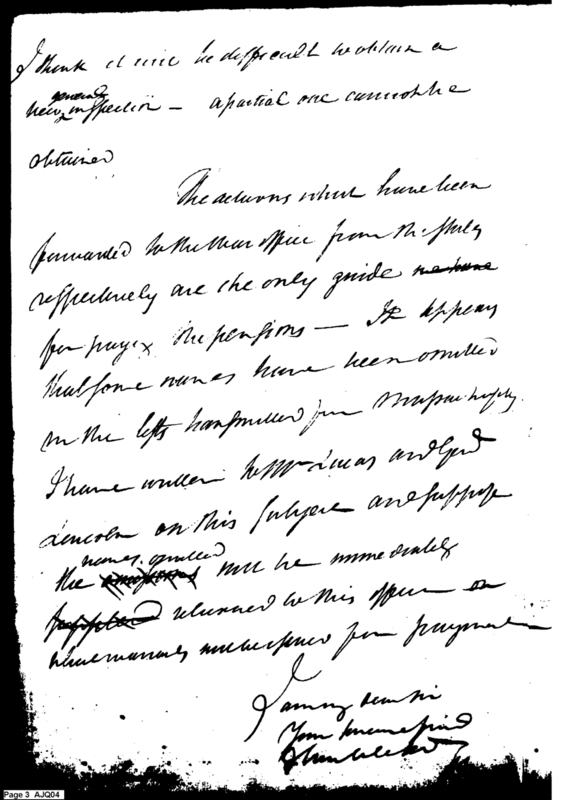 I think it will be difficult to obtain a
general
new inspection — a partial one cannot be
obtained
The returns which have been
forwarded to the War office from the States
respectively are the only guide we have
for payg the pensions — It appears
that some names have been omitted
in the lists transmitted from Massachusetts
I have written to Mr Lucas and Genl
Lincoln on this subject and suppose
names omitted
the omissions will be immediately
supplied returned to this office on
which warrants will be issued for payment
I am my dear sir
Your humane friend
Page 3 AJQ04